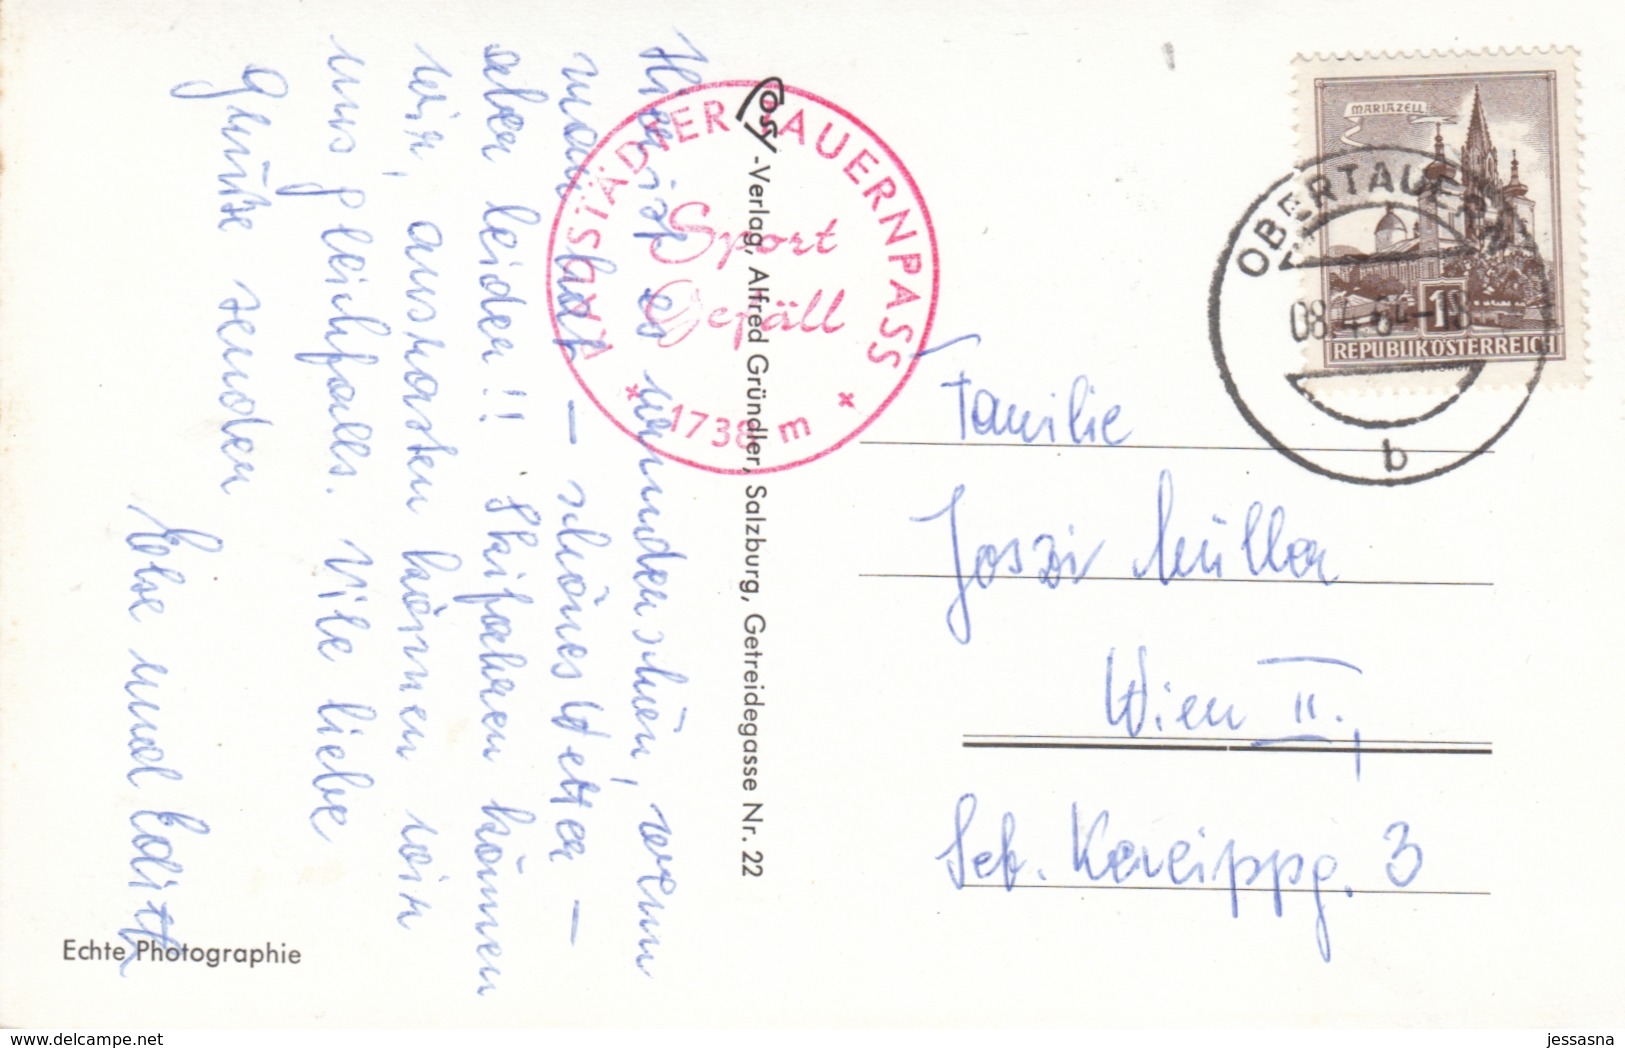 Hier ist es wunderschön, wenn
man hat — schönes Wetter —
aber leider!! Skifahren können
wir, ausrasten können wir
uns gleichfalls. Viele liebe
Grüße senden
Else und Edith
RADSTÄDTER TAUERNPASS
Sport
Gefäll
* 1738 m *
Cosy-Verlag, Alfred Gründler, Salzburg, Getreidegasse Nr. 22
MARIAZELL
1S
REPUBLIK ÖSTERREICH
OBERTAUERN
08.4.64-18
b
Familie
Joszi Müller
Wien II.,
Seb. Kneippg. 3
Echte Photographie
jessasna